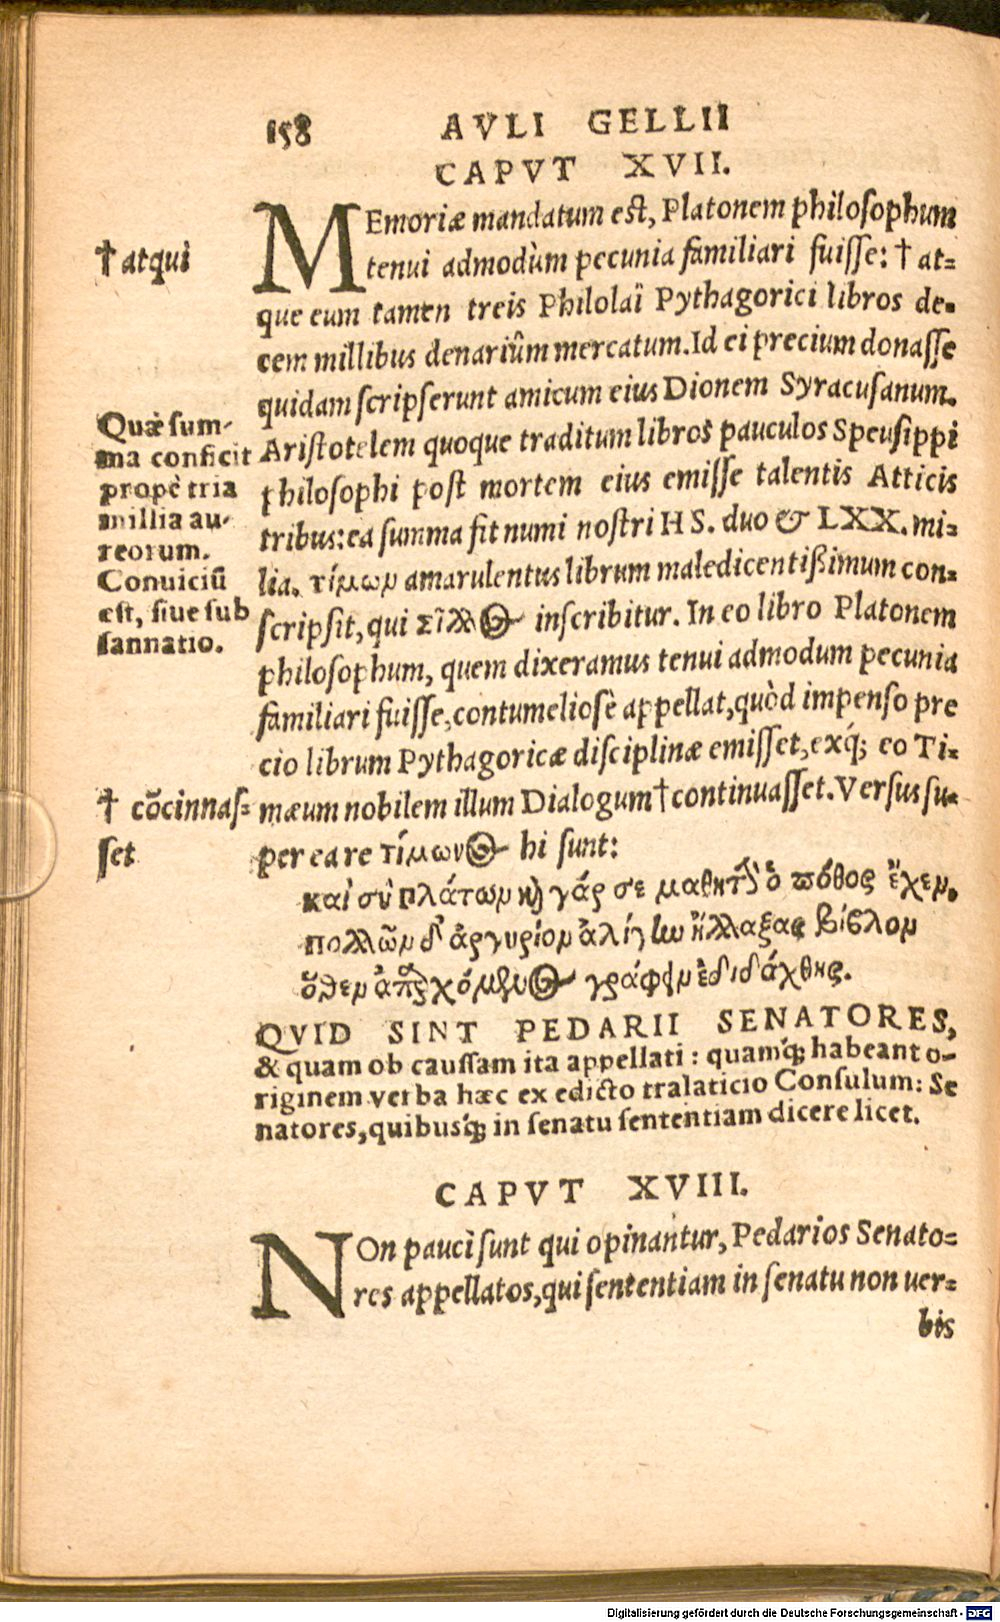 158 AVLI GELLII
CAPVT XVII.
MEmoriæ mandatum est, Platonem philosophum
† atqui
tenui admodùm pecunia familiari fuisse: † at-
que eum tamen treis Philolai Pythagorici libros de-
cem millibus denariûm mercatum. Id ei precium donasse
quidam scripserunt amicum eius Dionem Syracusanum.
Aristotelem quoque traditum libros pauculos Speusippi
philosophi post mortem eius emisse talentis Atticis
tribus: ea summa fit numi nostri HS. duo & LXX. mi-
Quæ sum-
ma conficit
propè tria
millia au-
reorum.
Conuiciū
est, siue sub
sannatio.
lia. τίμων amarulentus librum maledicentißimum con-
scripsit, qui σίλλος inscribitur. In eo libro Platonem
philosophum, quem dixeramus tenui admodum pecunia
familiari fuisse, contumeliosè appellat, quòd impenso pre
cio librum Pythagoricæ disciplinæ emisset, exq́; eo Ti-
† cōcinnas-
set
mæum nobilem illum Dialogum † continuasset. Versus su-
per ea re τίμωνος hi sunt:
καὶ σὺ πλάτων καὶ γάρ σε μαθητὴν ὁ πόθος ἔχεν,
πολλῶν δ' ἀργυρίον ὀλίγην ἤλλαξας βίβλον
ὅθεν γράφειν ἐδιδάχθης.
QVID SINT PEDARII SENATORES,
& quam ob caussam ita appellati: quamq́; habeant o-
riginem verba hæc ex edicto tralaticio Consulum: Se
natores, quibusq́; in senatu sententiam dicere licet.
CAPVT XVIII.
NOn pauci sunt qui opinantur, Pedarios Senato-
res appellatos, qui sententiam in senatu non uer-
bis
Digitalisierung gefördert durch die Deutsche Forschungsgemeinschaft - DFG